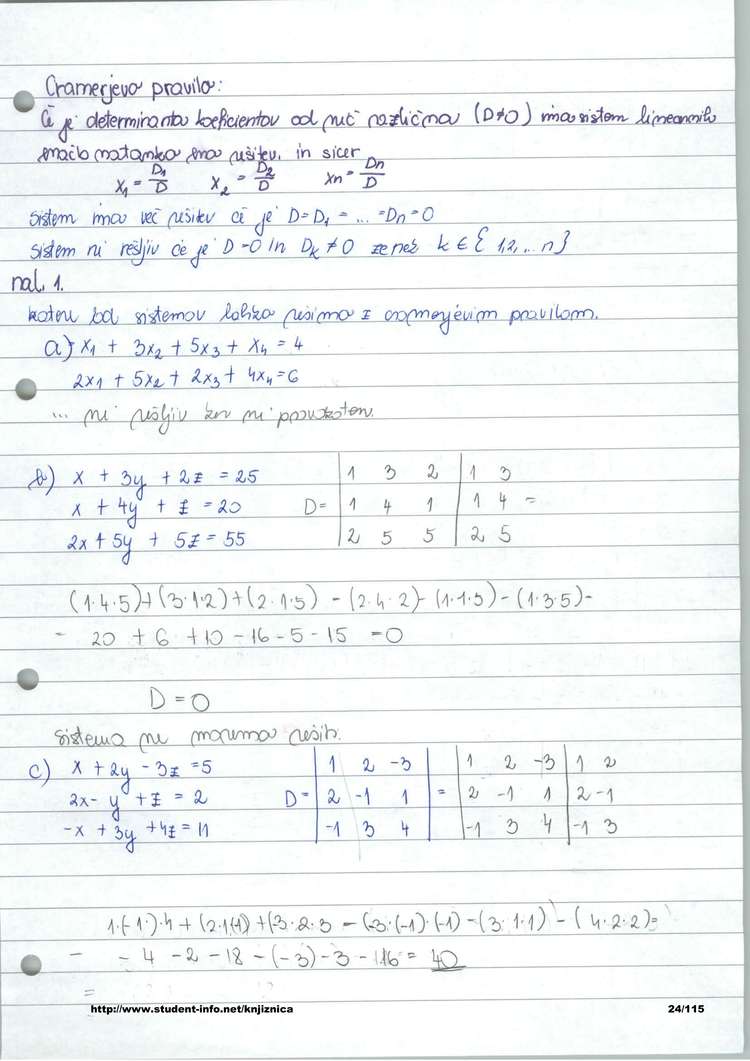 Cramerjevo pravilo:
Če je determinanta koeficientov od nič različna (D≠0) ima sistem linearnih
enačb natanko eno rešitev, in sicer
x₁ = D₁/D x₂ = D₂/D xn = Dn/D
sistem ima več rešitev če je D=D₁ = ... =Dn=0
sistem ni rešljiv če je D=0 in Dₖ ≠ 0 za nek k ∈ { 1,2,... n}
nal. 1.
kateri od sistemov lahko rešimo z cramerjevim pravilom.
a) x₁ + 3x₂ + 5x₃ + x₄ = 4
2x₁ + 5x₂ + 2x₃ + 4x₄ = 6
... ni rešljiv ker ni
b) x + 3y + 2z = 25 | 1 3 2 | 1 3
x + 4y + z = 20 D= | 1 4 1 | 1 4 =
2x + 5y + 5z = 55 | 2 5 5 | 2 5
(1·4·5)+(3·1·2)+(2·1·5) - (2·4·2)- (1·1·5)- (1·3·5)=
= 20 + 6 + 10 - 16 - 5 - 15 = 0
D = 0
sistema ne moremo rešiti.
c) x + 2y - 3z = 5 | 1 2 -3 | | 1 2 -3 | 1 2
2x - y + z = 2 D= | 2 -1 1 | = | 2 -1 1 | 2 -1
-x + 3y + 4z = 11 | -1 3 4 | | -1 3 4 | -1 3
1·(-1)·4 + (2·1·(-1)) + (-3·2·3 - (-3·(-1)·(-1) - (3·1·1) - (4·2·2)=
= - 4 - 2 - 18 - (-3) - 3 - 16 = 40
=
http://www.student-info.net/knjiznica 24/115